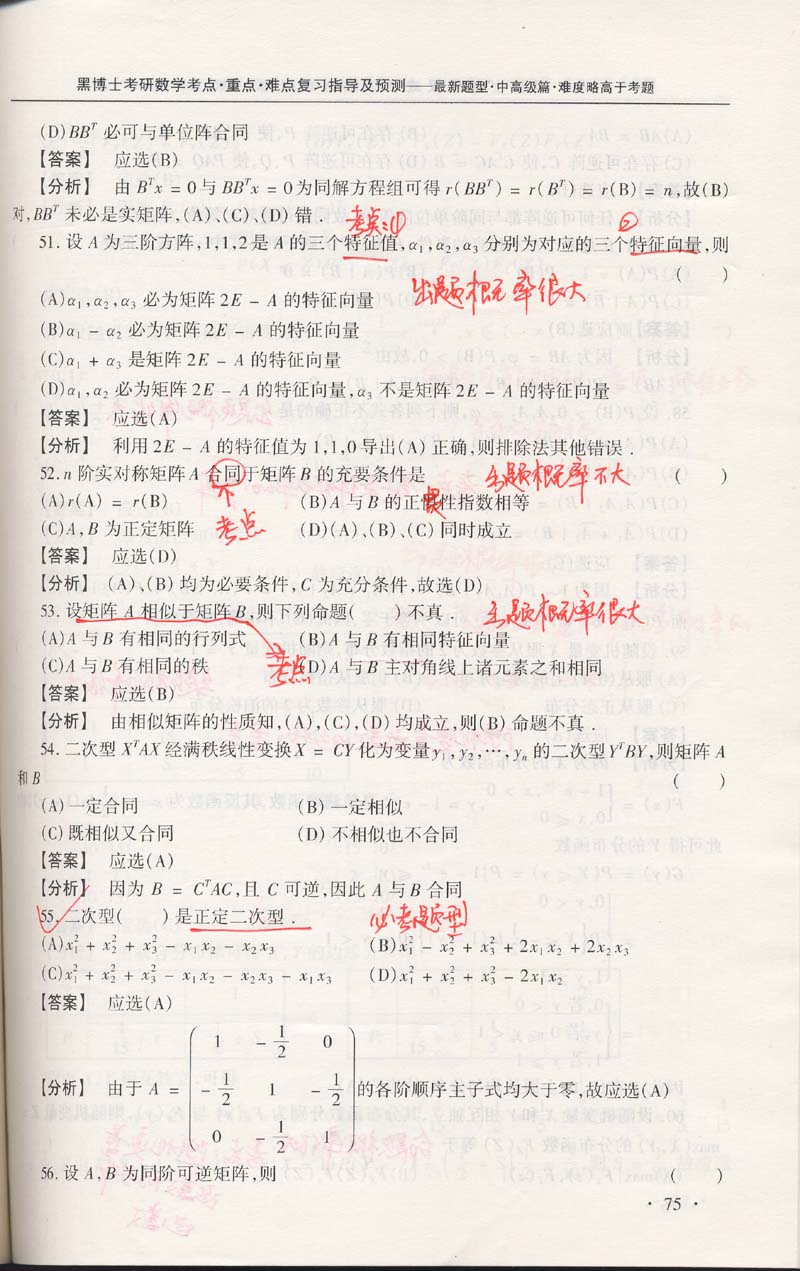 黑博士考研数学考点·重点·难点复习指导及预测——最新题型·中高级篇·难度略高于考题
(D)BBᵀ 必可与单位阵合同
【答案】 应选(B)
【分析】 由 Bᵀx = 0与 BBᵀx = 0为同解方程组可得 r(BBᵀ) = r(Bᵀ) = r(B) = n,故(B)
对,BBᵀ 未必是实矩阵,(A)、(C)、(D)错.
考点:① ②
51.设 A 为三阶方阵,1,1,2是 A 的三个特征值,α₁,α₂,α₃ 分别为对应的三个特征向量,则
( )
(A)α₁,α₂,α₃ 必为矩阵 2E - A 的特征向量
出题概率很大
(B)α₁ - α₂ 必为矩阵 2E - A 的特征向量
(C)α₁ + α₃ 是矩阵 2E - A 的特征向量
(D)α₁,α₂ 必为矩阵 2E - A 的特征向量,α₃ 不是矩阵 2E - A 的特征向量
【答案】 应选(A)
【分析】 利用 2E - A 的特征值为 1,1,0 导出(A) 正确,则排除法其他错误.
52.n 阶实对称矩阵 A 合同于矩阵 B 的充要条件是 出题概率不大 ( )
(A)r(A) = r(B) (B)A 与 B 的正惯性指数相等
(C)A,B 为正定矩阵 考点 (D)(A)、(B)、(C) 同时成立
【答案】 应选(D)
【分析】 (A)、(B) 均为必要条件,C 为充分条件,故选(D)
53.设矩阵 A 相似于矩阵 B,则下列命题( )不真. 出题概率很大
(A)A 与 B 有相同的行列式 (B)A 与 B 有相同特征向量
(C)A 与 B 有相同的秩 考点 (D)A 与 B 主对角线上诸元素之和相同
【答案】 应选(B)
【分析】 由相似矩阵的性质知,(A),(C),(D) 均成立,则(B) 命题不真.
54.二次型 XᵀAX 经满秩线性变换X = CY化为变量y₁,y₂,…,yₙ 的二次型 YᵀBY,则矩阵 A
和 B ( )
(A)一定合同 (B)一定相似
(C)既相似又合同 (D) 不相似也不合同
【答案】 应选(A)
【分析】 因为 B = CᵀAC,且 C 可逆,因此 A 与 B 合同
55.二次型( )是正定二次型. (必考题型)
(A)x₁² + x₂² + x₃² - x₁x₂ - x₂x₃ (B)x₁² - x₂² + x₃² + 2x₁x₂ + 2x₂x₃
(C)x₁² + x₂² + x₃² - x₁x₂ - x₂x₃ - x₁x₃ (D)x₁² + x₂² + x₃² - 2x₁x₂
【答案】 应选(A)
1 -1/2 0
【分析】 由于 A = -1/2 1 -1/2 的各阶顺序主子式均大于零,故应选(A)
0 -1/2 1
56.设 A,B 为同阶可逆矩阵,则 ( )
· 75 ·